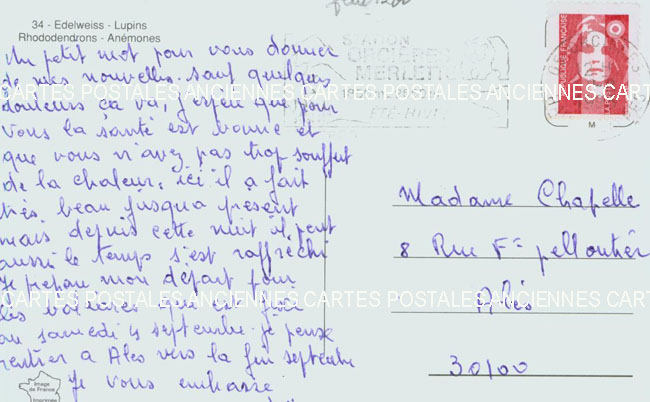 34 - Edelweiss - Lupins
Rhododendrons - Anémones
Un petit mot pour vous donner
de mes nouvelles. Sauf quelques
douleurs ça va, j'espère que pour
vous la santé est bonne et
que vous n'avez pas trop souffert
de la chaleur, ici il a fait
très beau jusqua présent
mais depuis cette nuit il pleut
aussi le temps s'est raffréchi
Je prépare mon départ pour
les
au samedi 4 septembre. je pense
rentrer a Alès vers la fin septembre
Je vous embrasse
Madame Chapelle
8 Rue Fn pelloutier
Alès
30100
STATION
MERLETTE
ÉTÉ-HIVER
REPUBLIQUE FRANÇAISE
CARTES POSTALES ANCIENNES CARTES POSTALES ANCIENNES CARTES POSTALES ANCIENNES CART
CARTES POSTALES ANCIENNES CARTES POSTALES ANCIENNES CARTES POSTALES ANCIENNES CART
M
Image
de France
Imprimée